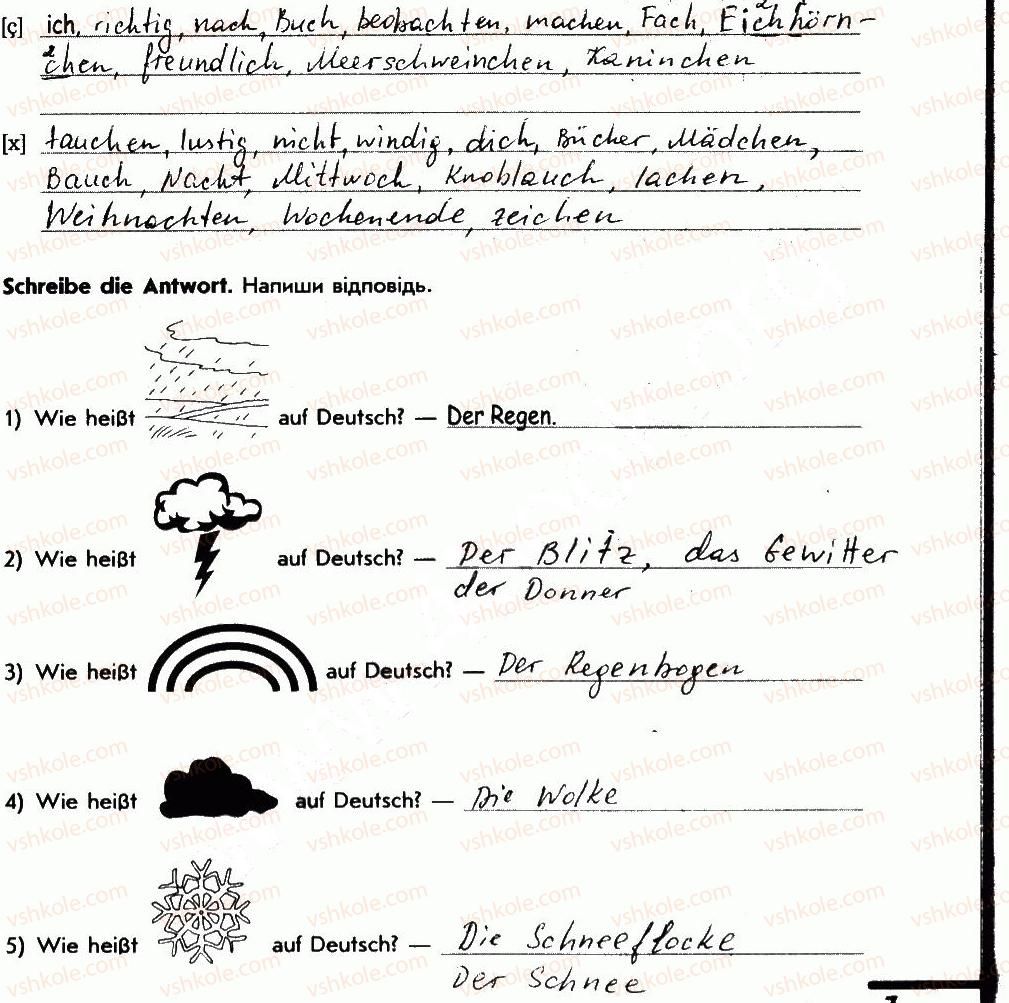 [ç] ich, richtig, nach, Buch, beobachten, machen, Fach, Eichhörn-
chen, freundlich, Meerschweinchen, Kaninchen
[x] tauchen, lustig, nicht, windig, dich, Bücher, Mädchen,
Bauch, Nacht, Mittwoch, Knoblauch, lachen,
Weihnachten, Wochenende, zeichen
Schreibe die Antwort. Напиши відповідь.
1) Wie heißt auf Deutsch? — Der Regen.
2) Wie heißt auf Deutsch? — Der Blitz, das Gewitter
der Donner
3) Wie heißt auf Deutsch? — Der Regenbogen
4) Wie heißt auf Deutsch? — Die Wolke
5) Wie heißt auf Deutsch? — Die Schneeflocke
Der Schnee
vshkole.com